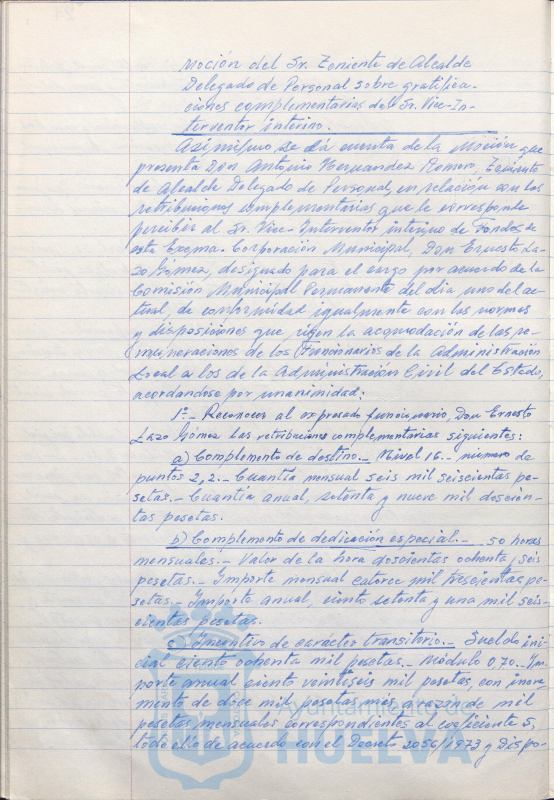 Moción del Sr. Teniente de Alcalde
Delegado de Personal sobre gratifica-
ciones complementarias del Sr. Vice-In-
terventor interino.
Asimismo se da cuenta de la moción que
presenta Don Antonio Hernandez Romero, Teniente
de Alcalde Delegado de Personal, en relación con las
retribuciones complementarias que le corresponde
percibir al Sr. Vice-Interventor interino de Fondos de
esta Excma. Corporación Municipal, Don Ernesto La-
zo Gómez, designado para el cargo por acuerdo de la
Comisión Municipal Permanente del dia uno del ac-
tual, de conformidad igualmente con las normas
y disposiciones que rigen la acomodación de las re-
muneraciones de los Funcionarios de la Administración
Local a los de la Administración Civil del Estado,
acordandose por unanimidad:
1º.- Reconocer al expresado funcionario, Don Ernesto
Lazo Gómez las retribuciones complementarias siguientes:
a) Complemento de destino.- Nivel 16.- número de
puntos 2,2.- Cuantía mensual seis mil seiscientas pe-
setas.- Cuantía anual, setenta y nueve mil doscien-
tas pesetas.
b) Complemento de dedicación especial.- 50 horas
mensuales.- Valor de la hora doscientas ochenta y seis
pesetas.- Importe mensual catorce mil trescientas pe-
setas.- Importe anual, ciento setenta y una mil seis-
cientas pesetas.
c) Incentivo de carácter transitorio.- Sueldo ini-
cial ciento ochenta mil pesetas.- Módulo 0,70.- Im-
porte anual ciento veintiseis mil pesetas, con incre-
mento de doce mil pesetas más a razón de mil
pesetas mensuales correspondientes al coeficiente 5,
todo ello de acuerdo con el Decreto 2056/1973 y Dispo-
Ayuntamiento de
HUELVA